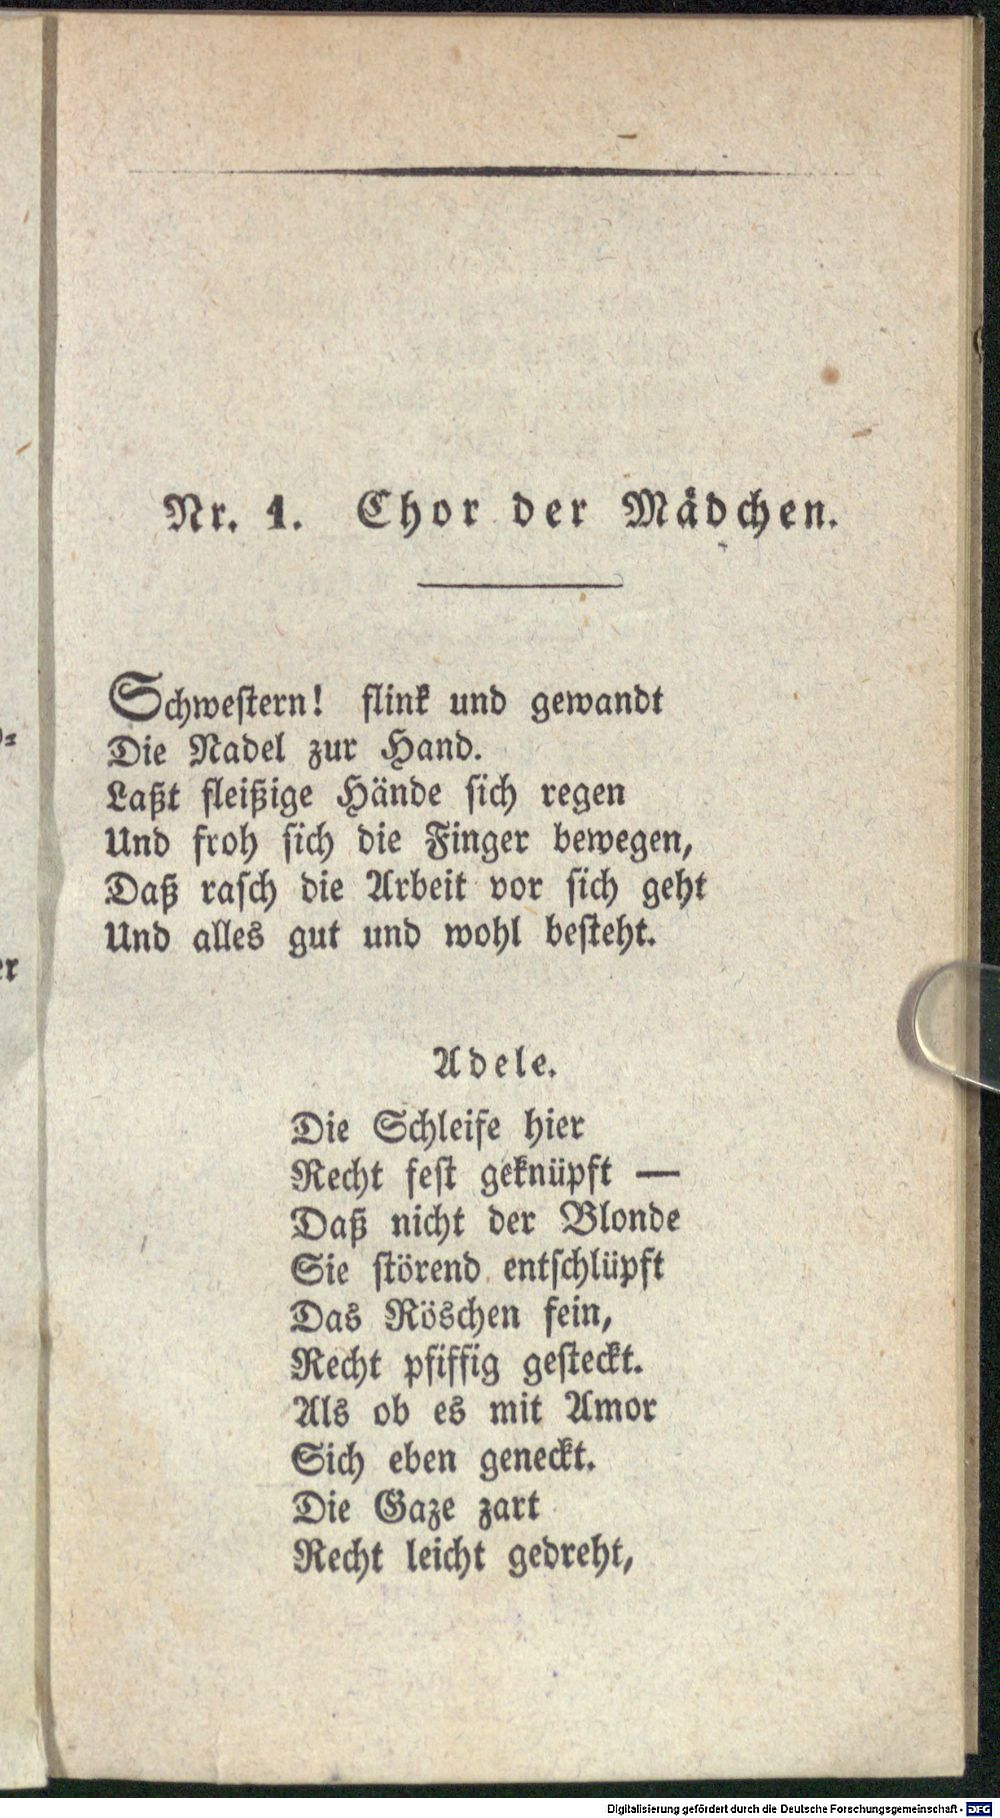 Nr. 1. Chor der Mädchen.
Schwestern! flink und gewandt
Die Nadel zur Hand.
Laßt fleißige Hände sich regen
Und froh sich die Finger bewegen,
Daß rasch die Arbeit vor sich geht
Und alles gut und wohl besteht.
Adele.
Die Schleife hier
Recht fest geknüpft —
Daß nicht der Blonde
Sie störend entschlüpft
Das Röschen fein,
Recht pfiffig gesteckt.
Als ob es mit Amor
Sich eben geneckt.
Die Gaze zart
Recht leicht gedreht,
Digitalisierung gefördert durch die Deutsche Forschungsgemeinschaft - DFG